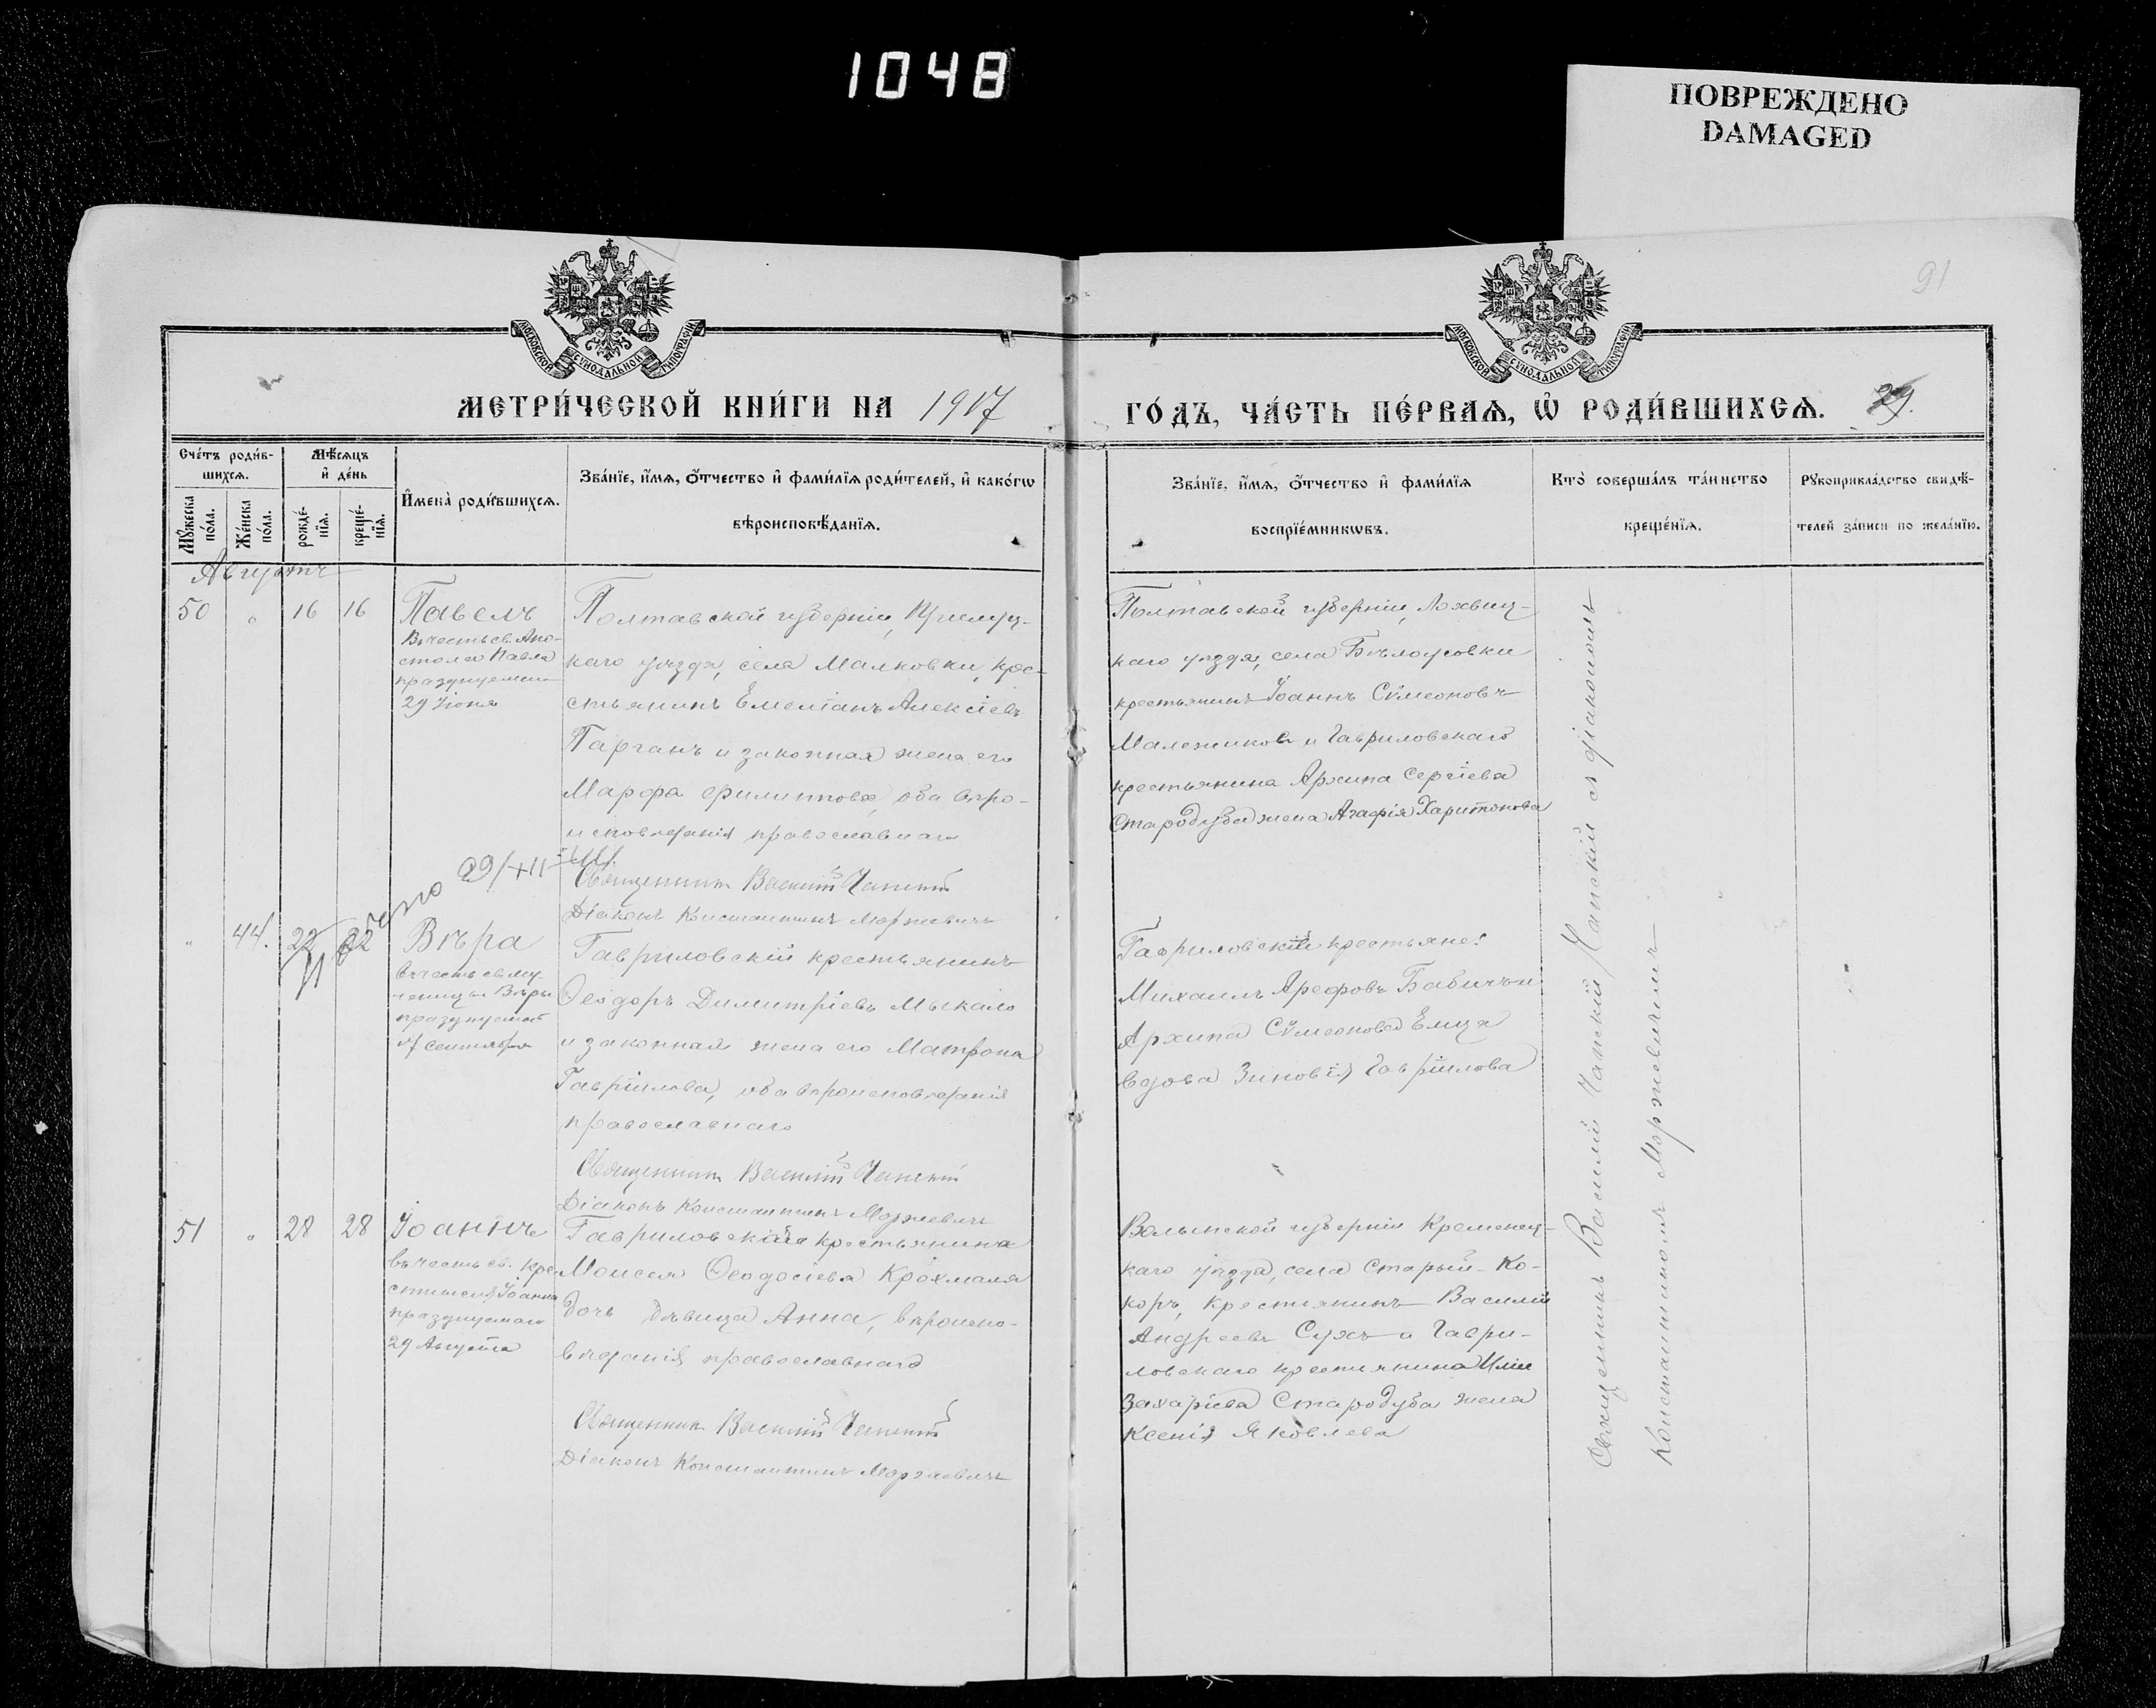 1048
ПОВРЕЖДЕНО
DAMAGED
91
МОСКОВСКОЙ СѴНОДАЛЬНОЙ ТИПОГРАФІИ
МОСКОВСКОЙ СѴНОДАЛЬНОЙ ТИПОГРАФІИ
МЕТРИ́ЧЕСКОЙ КНИ́ГИ НА 1917
ГО́ДЪ, ЧА́СТЬ ПЕ́РВАѦ, Ѡ҆ РОДИ́ВШИХСѦ. 29.
Сче́тъ роди́в-
шихсѧ.
Мꙋ́жеска по́ла.
Же́нска по́ла.
Мѣ́сѧцъ
и҆ де́нь
рожде́-
нїѧ.
креще́-
нїѧ.
И҆мена̀ роди́вшихсѧ.
Зва́нїе, и҆́мѧ, ѻ҆́тчество и҆ фами́лїѧ роди́телей, и҆ како́гѡ
вѣроисповѣ́данїѧ.
Зва́нїе, и҆́мѧ, ѻ҆́тчество и҆ фами́лїѧ
воспрїе́мникѡвъ.
Кто̀ соверша́лъ та́инство
креще́нїѧ.
Рꙋкоприкла́дство свидѣ́-
телей за́писи по жела́нїю.
Августъ
50 " 16 16
Павелъ
Въ честь св. Апо-
стола Павла
празднуемаго
29 Іюня
Полтавской губерніи, Прилуц-
каго уѣзда, села Малковки, кре-
стьянинъ Емеліанъ Алексіевъ
Парганъ и законная жена его
Марфа Филиппова, оба вѣро-
исповѣданія православнаго
Священникъ Василій Чапскій
Діаконъ Константинъ Моржевичъ
Полтавской губерніи, Лохвиц-
каго уѣзда, села Бѣлоусовки
крестьянинъ Іоаннъ Сѵмеоновъ
Малежиковъ и Гавриловскаго
крестьянина Архипа Сергіева
Стародуба жена Агафія Харитонова
29/XII
" 44. 22 22
Вѣра
въ честь св. му-
ченицы Вѣры
празднуемой
17 Сентября
Гавриловскій крестьянинъ
Ѳеодоръ Димитріевъ Мыкало
и законная жена его Матрона
Гавріилова, оба вѣроисповѣданія
православнаго
Священникъ Василій Чапскій
Діаконъ Константинъ Моржевичъ
Гавриловскіе крестьяне:
Михаилъ Арефовъ Бабичъ и
Архипа Сѵмеонова Емца
вдова Зиновія Гавріилова
51 " 28 28
Іоаннъ
въ честь св. Кре-
стителя Іоанна
празднуемаго
29 Августа
Гавриловскаго крестьянина
Моисея Ѳеодосіева Крохмаля
дочь дѣвица Анна, вѣроиспо-
вѣданія православнаго
Священникъ Василій Чапскій
Діаконъ Константинъ Моржевичъ
Волынской губерніи Кременец-
каго уѣзда, села Старый-Ко-
коръ, крестьянинъ Василій
Андреевъ Сухъ и Гаври-
ловскаго крестьянина Иліи
Захаріева Стародуба жена
Ксенія Яковлева
Священникъ Василій Чапскій съ діакономъ
Константиномъ Моржевичемъ